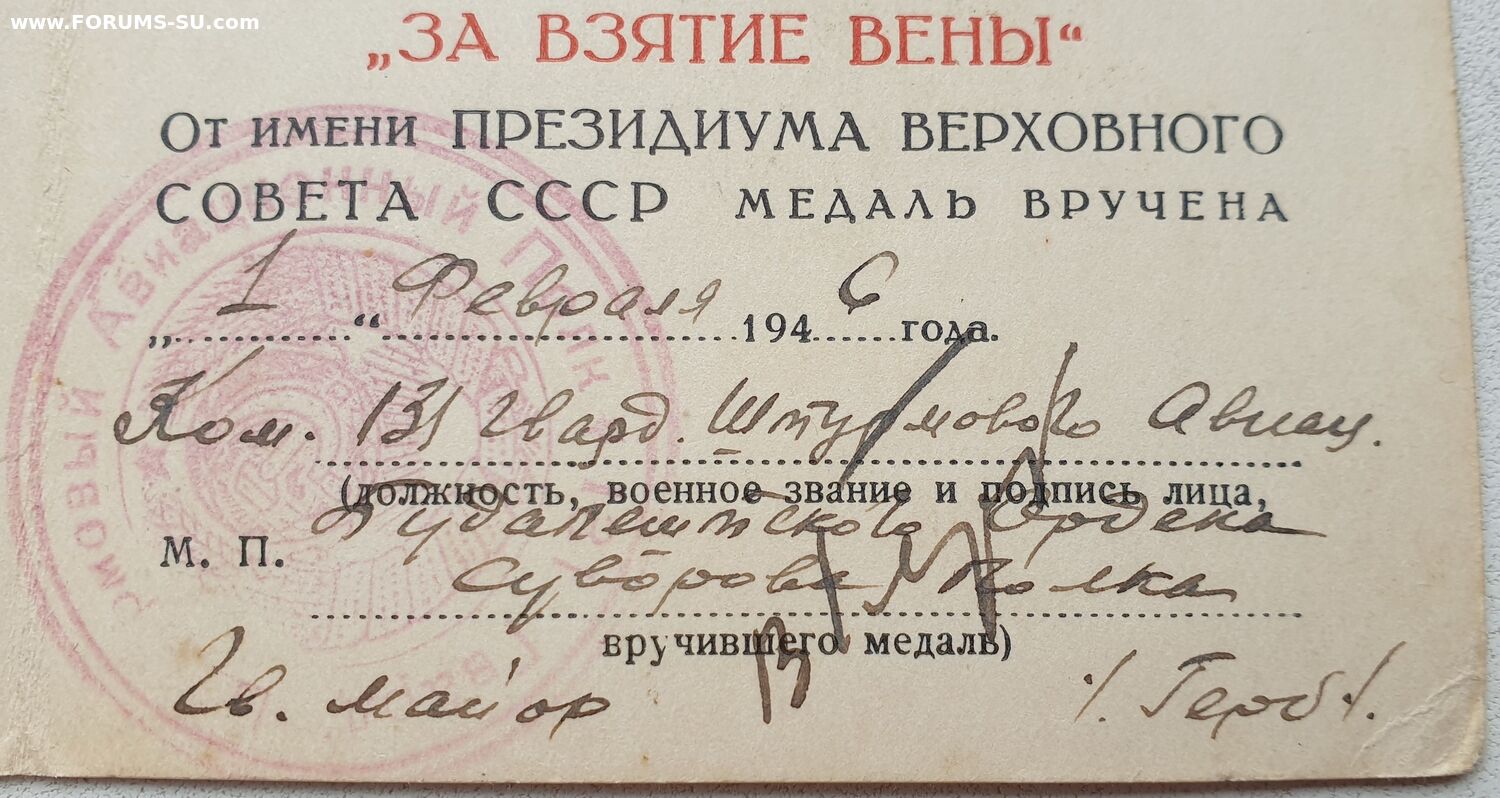 www.FORUMS-SU.com
„ЗА ВЗЯТИЕ ВЕНЫ“
От имени ПРЕЗИДИУМА ВЕРХОВНОГО
СОВЕТА СССР МЕДАЛЬ ВРУЧЕНА
„1“ Февраля 1946 года.
Ком. 131 Гвард. Штурмового Авиац.
(должность, военное звание и подпись лица,
М. П. Будапештского Ордена
Суворова полка
вручившего медаль)
Гв. майор /Герб/.
мовый Авиационный Полк